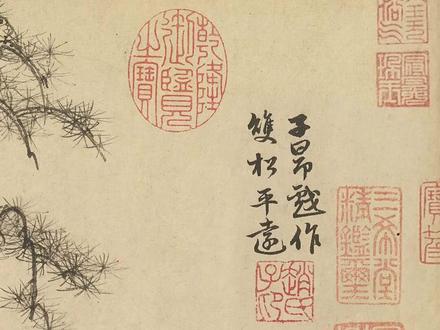 三希堂
精鑑璽
子昂戲作
雙松平遠
趙氏
子昂
乾隆
御覽
之寶